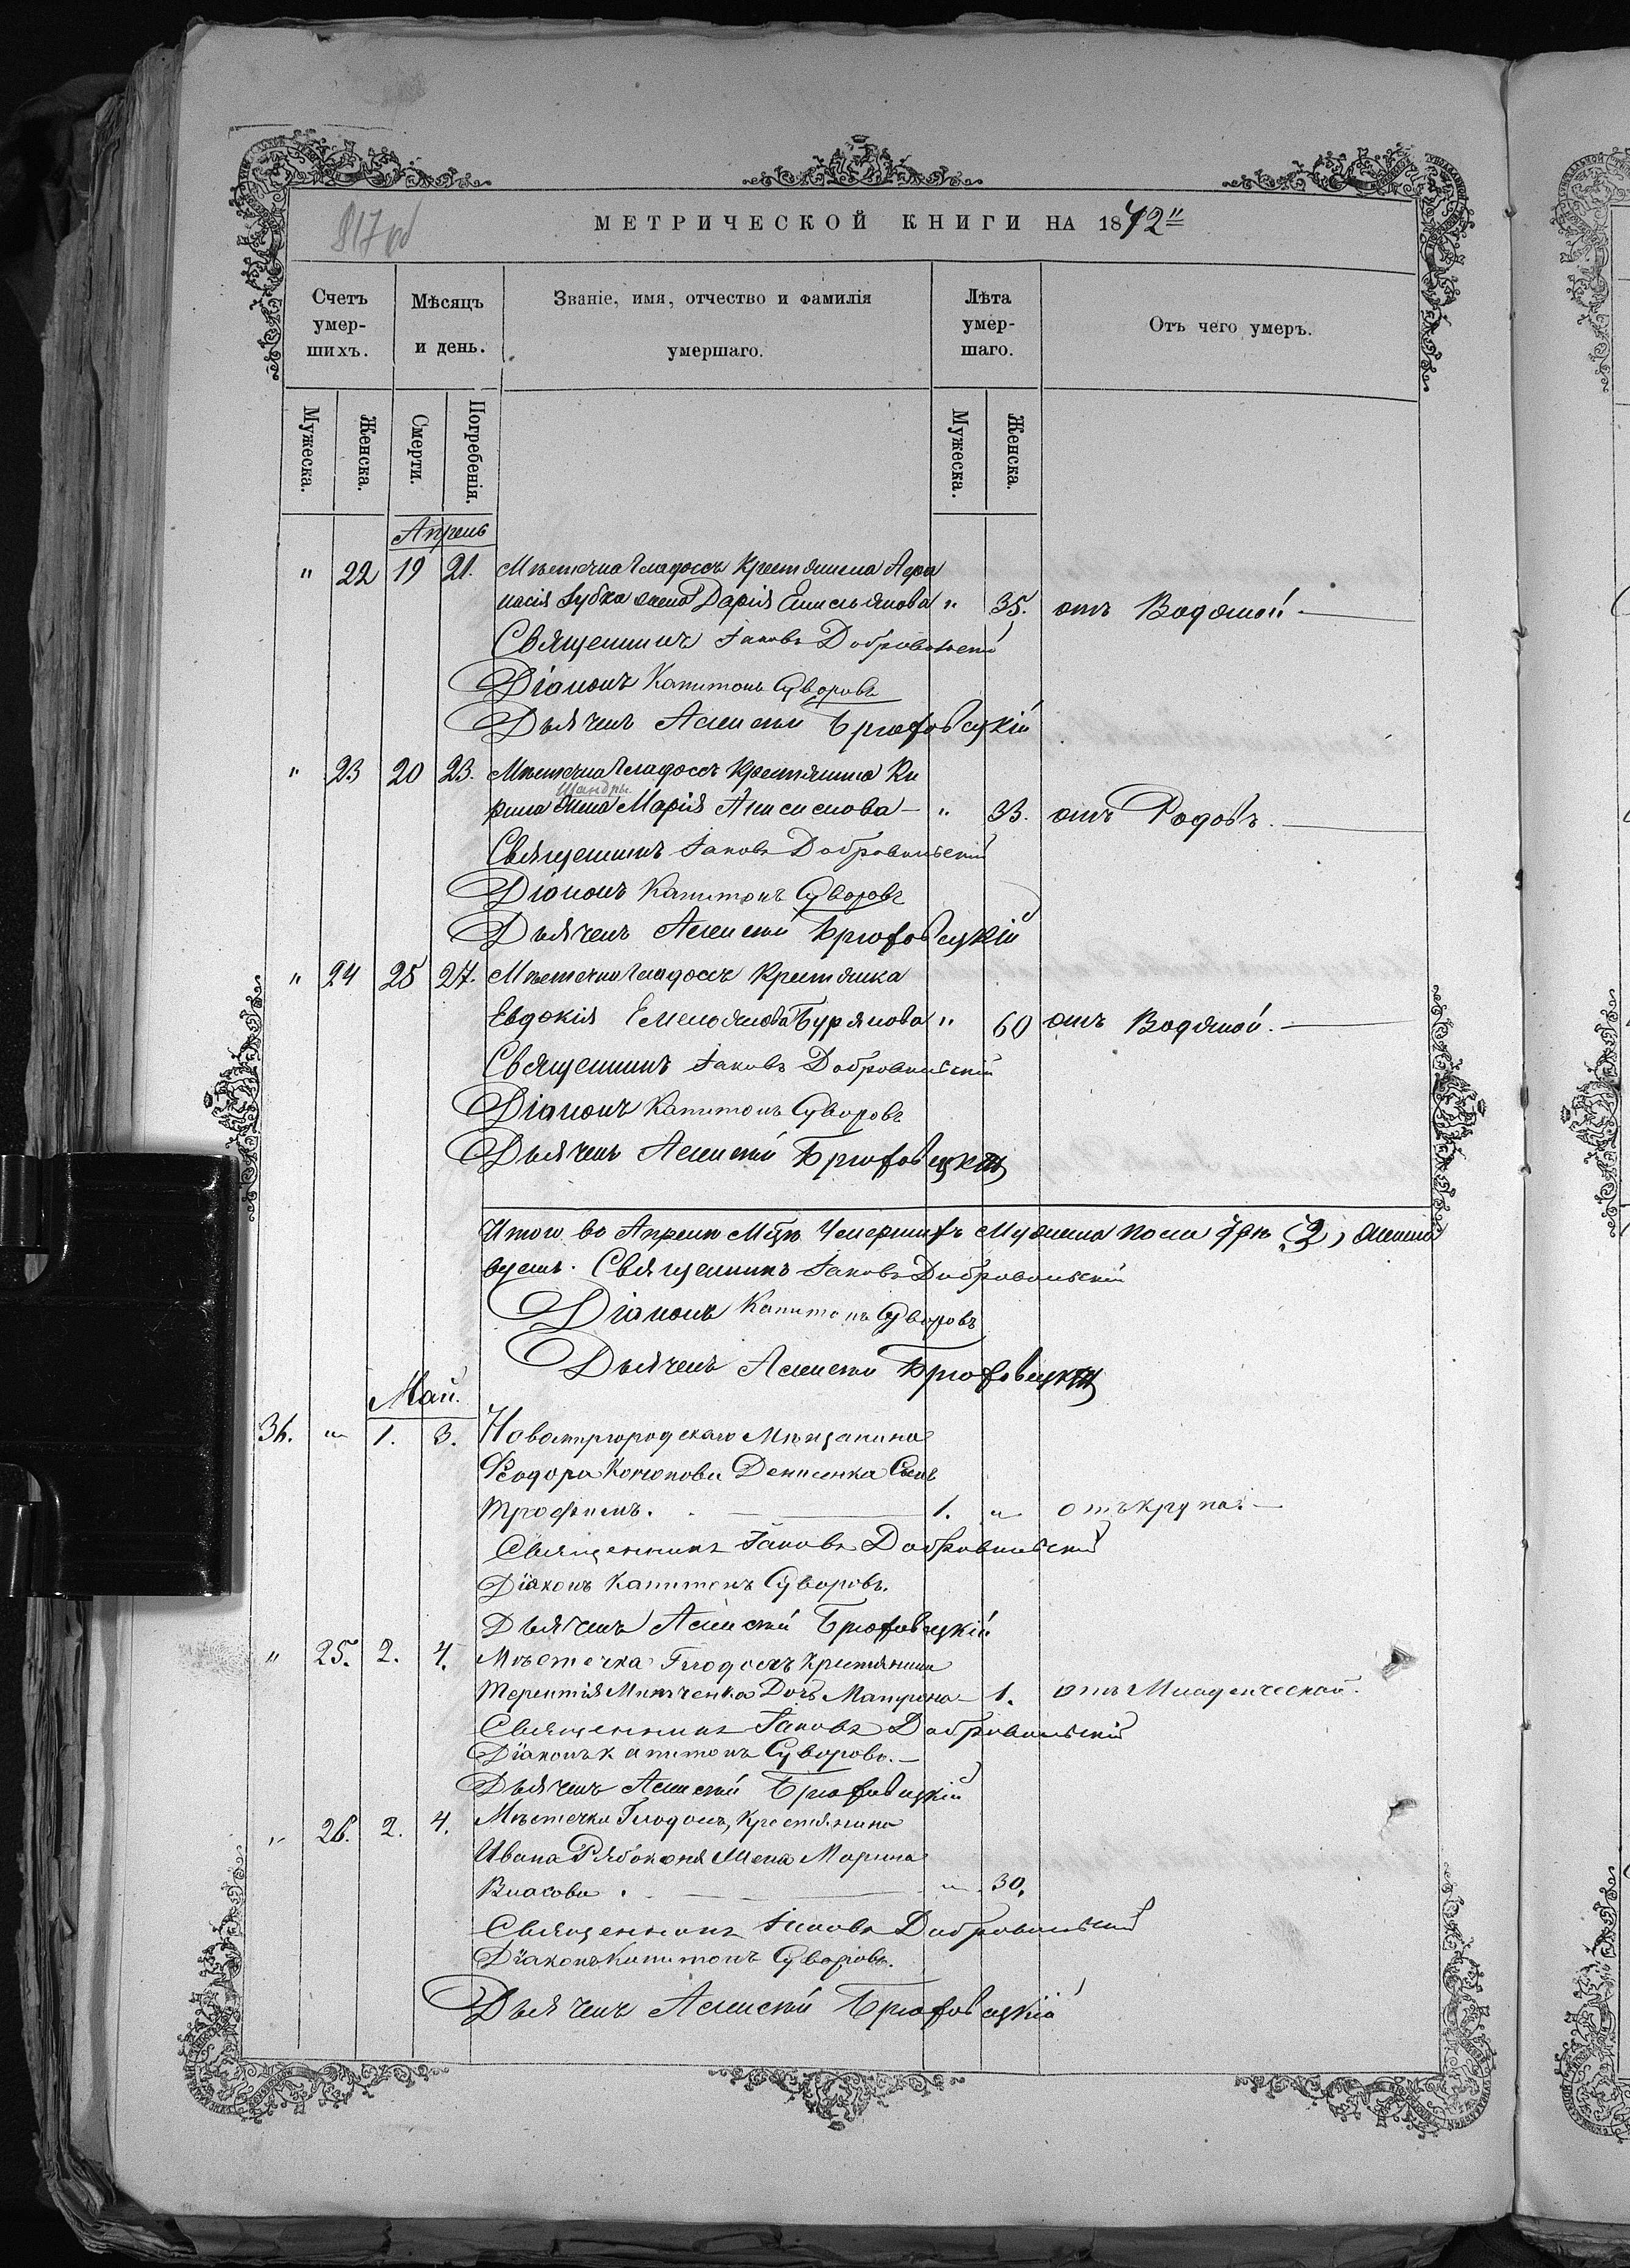 817 об
МЕТРИЧЕСКОЙ КНИГИ НА 1872"
Счетъ умер-шихъ.
Мѣсяцъ и день.
Званіе, имя, отчество и фамилія умершаго.
Лѣта умер-шаго.
Отъ чего умеръ.
Мужеска.
Женска.
Смерти.
Погребенія.
Мужеска.
Женска.
Апрель
" 22 19 21. Мѣстечка Гладоссъ Крестянина Афа
насія Зубка жена Дарія Емельянова " 35. отъ Водяной
Священникъ Іаковъ Добровольскій
Діаконъ Капитонъ Суворовъ
Дьячекъ Алексѣй Брюховецкій
" 23 20 23. Мѣстечка Гладоссъ Крестянина Ки
Шандры
рила жена Марія Анисимова " 33. отъ Родовъ.
Священникъ Іаковъ Добровольскій
Діаконъ Капитонъ Суворовъ
Дьячекъ Алексѣй Брюховецкій
" 24 25 27. Мѣстечка Гладоссъ Крестянка
Евдокія Емельянова Бурякова " 60 отъ Водяной.
Священникъ Іаковъ Добровольскій
Діаконъ Капитонъ Суворовъ
Дьячекъ Алексѣй Брюховецкій
Итого во Апрелѣ Мцѣ Умершихъ Мужеска пола 2, женска
Священникъ Іаковъ Добровольскій
Діаконъ Капитонъ Суворовъ
Дьячекъ Алексѣй Брюховецкій
Май.
36. " 1. 3. Новомиргородскаго Мѣщанина
Феодора Денисенка Сынъ
Трофимъ. 1. " отъ крупа.
Священникъ Іаковъ Добровольскій
Діаконъ Капитонъ Суворовъ.
Дьячекъ Алексѣй Брюховецкій
" 25. 2. 4. Мѣстечка Глодоссъ Крестянина
Терентія Дочь Матрона 1. отъ Младенческой.
Священникъ Іаковъ Добровольскій
Діаконъ Капитонъ Суворовъ.
Дьячекъ Алексѣй Брюховецкій
" 26. 2. 4. Мѣстечка Глодоссъ, Крестянина
Ивана Рябоконя Жена Марина
Власова. " 30.
Священникъ Іаковъ Добровольскій
Діаконъ Капитонъ Суворовъ.
Дьячекъ Алексѣй Брюховецкій